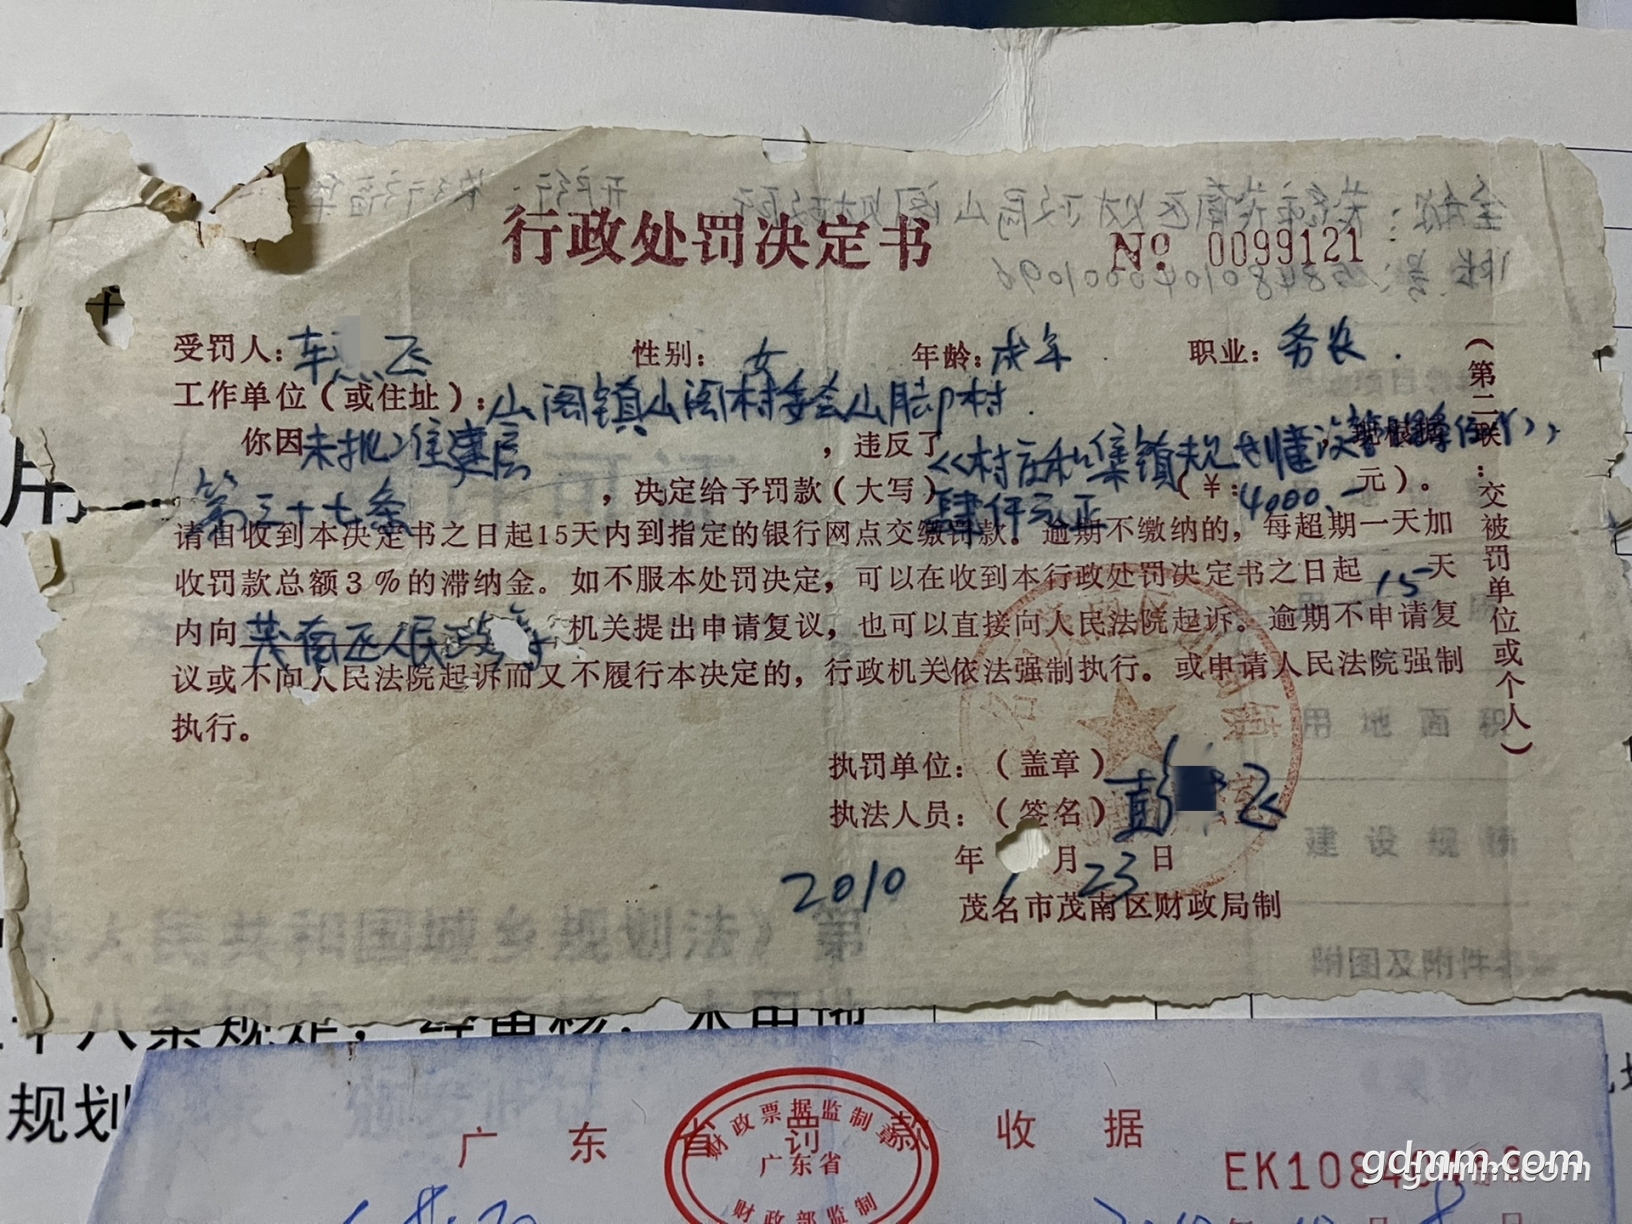 行政处罚决定书 № 0099121
受罚人：车 飞 性别：女 年龄：成年 职业：务农.
工作单位（或住址）：山阁镇山阁村委会山脚村.
你因未批准建房，违反了《村庄和集镇规划建设管理条例》，
第三十七条，决定给予罚款（大写）肆仟元正（¥：4000.- 元）。
请自收到本决定书之日起15天内到指定的银行网点交缴罚款。逾期不缴纳的，每超期一天加
收罚款总额3%的滞纳金。如不服本处罚决定，可以在收到本行政处罚决定书之日起 15 天
内向茂南区人民政 机关提出申请复议，也可以直接向人民法院起诉。逾期不申请复
议或不向人民法院起诉而又不履行本决定的，行政机关依法强制执行。或申请人民法院强制
执行。
执罚单位：（盖章）
执法人员：（签名）彭 飞
2010 年 月 23 日
茂名市茂南区财政局制
（第二联：交被罚单位或个人）
用地面积
建设规模
附图及附件名
人民共和国城乡规划法》第
十八条规定，经审核，本用地
规划
广东省罚款收据
财政票据监制章
广东省
财政部监制
EK108
gdmm.com